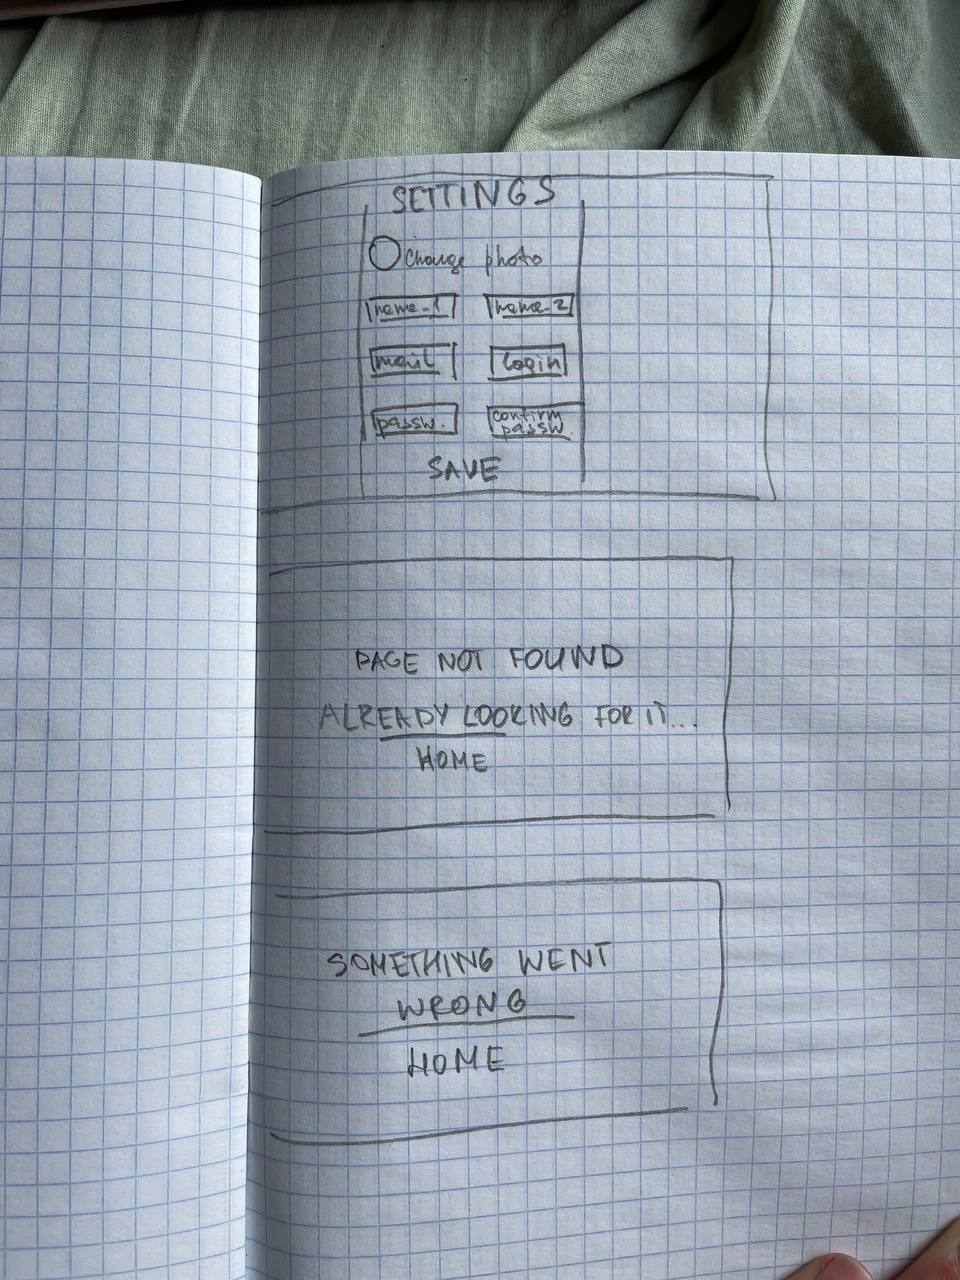 SETTINGS
Change photo
name_1 name_2
mail login
passw. confirm passw.
SAVE
PAGE NOT FOUND
ALREADY LOOKING FOR IT...
HOME
SOMETHING WENT
WRONG
HOME